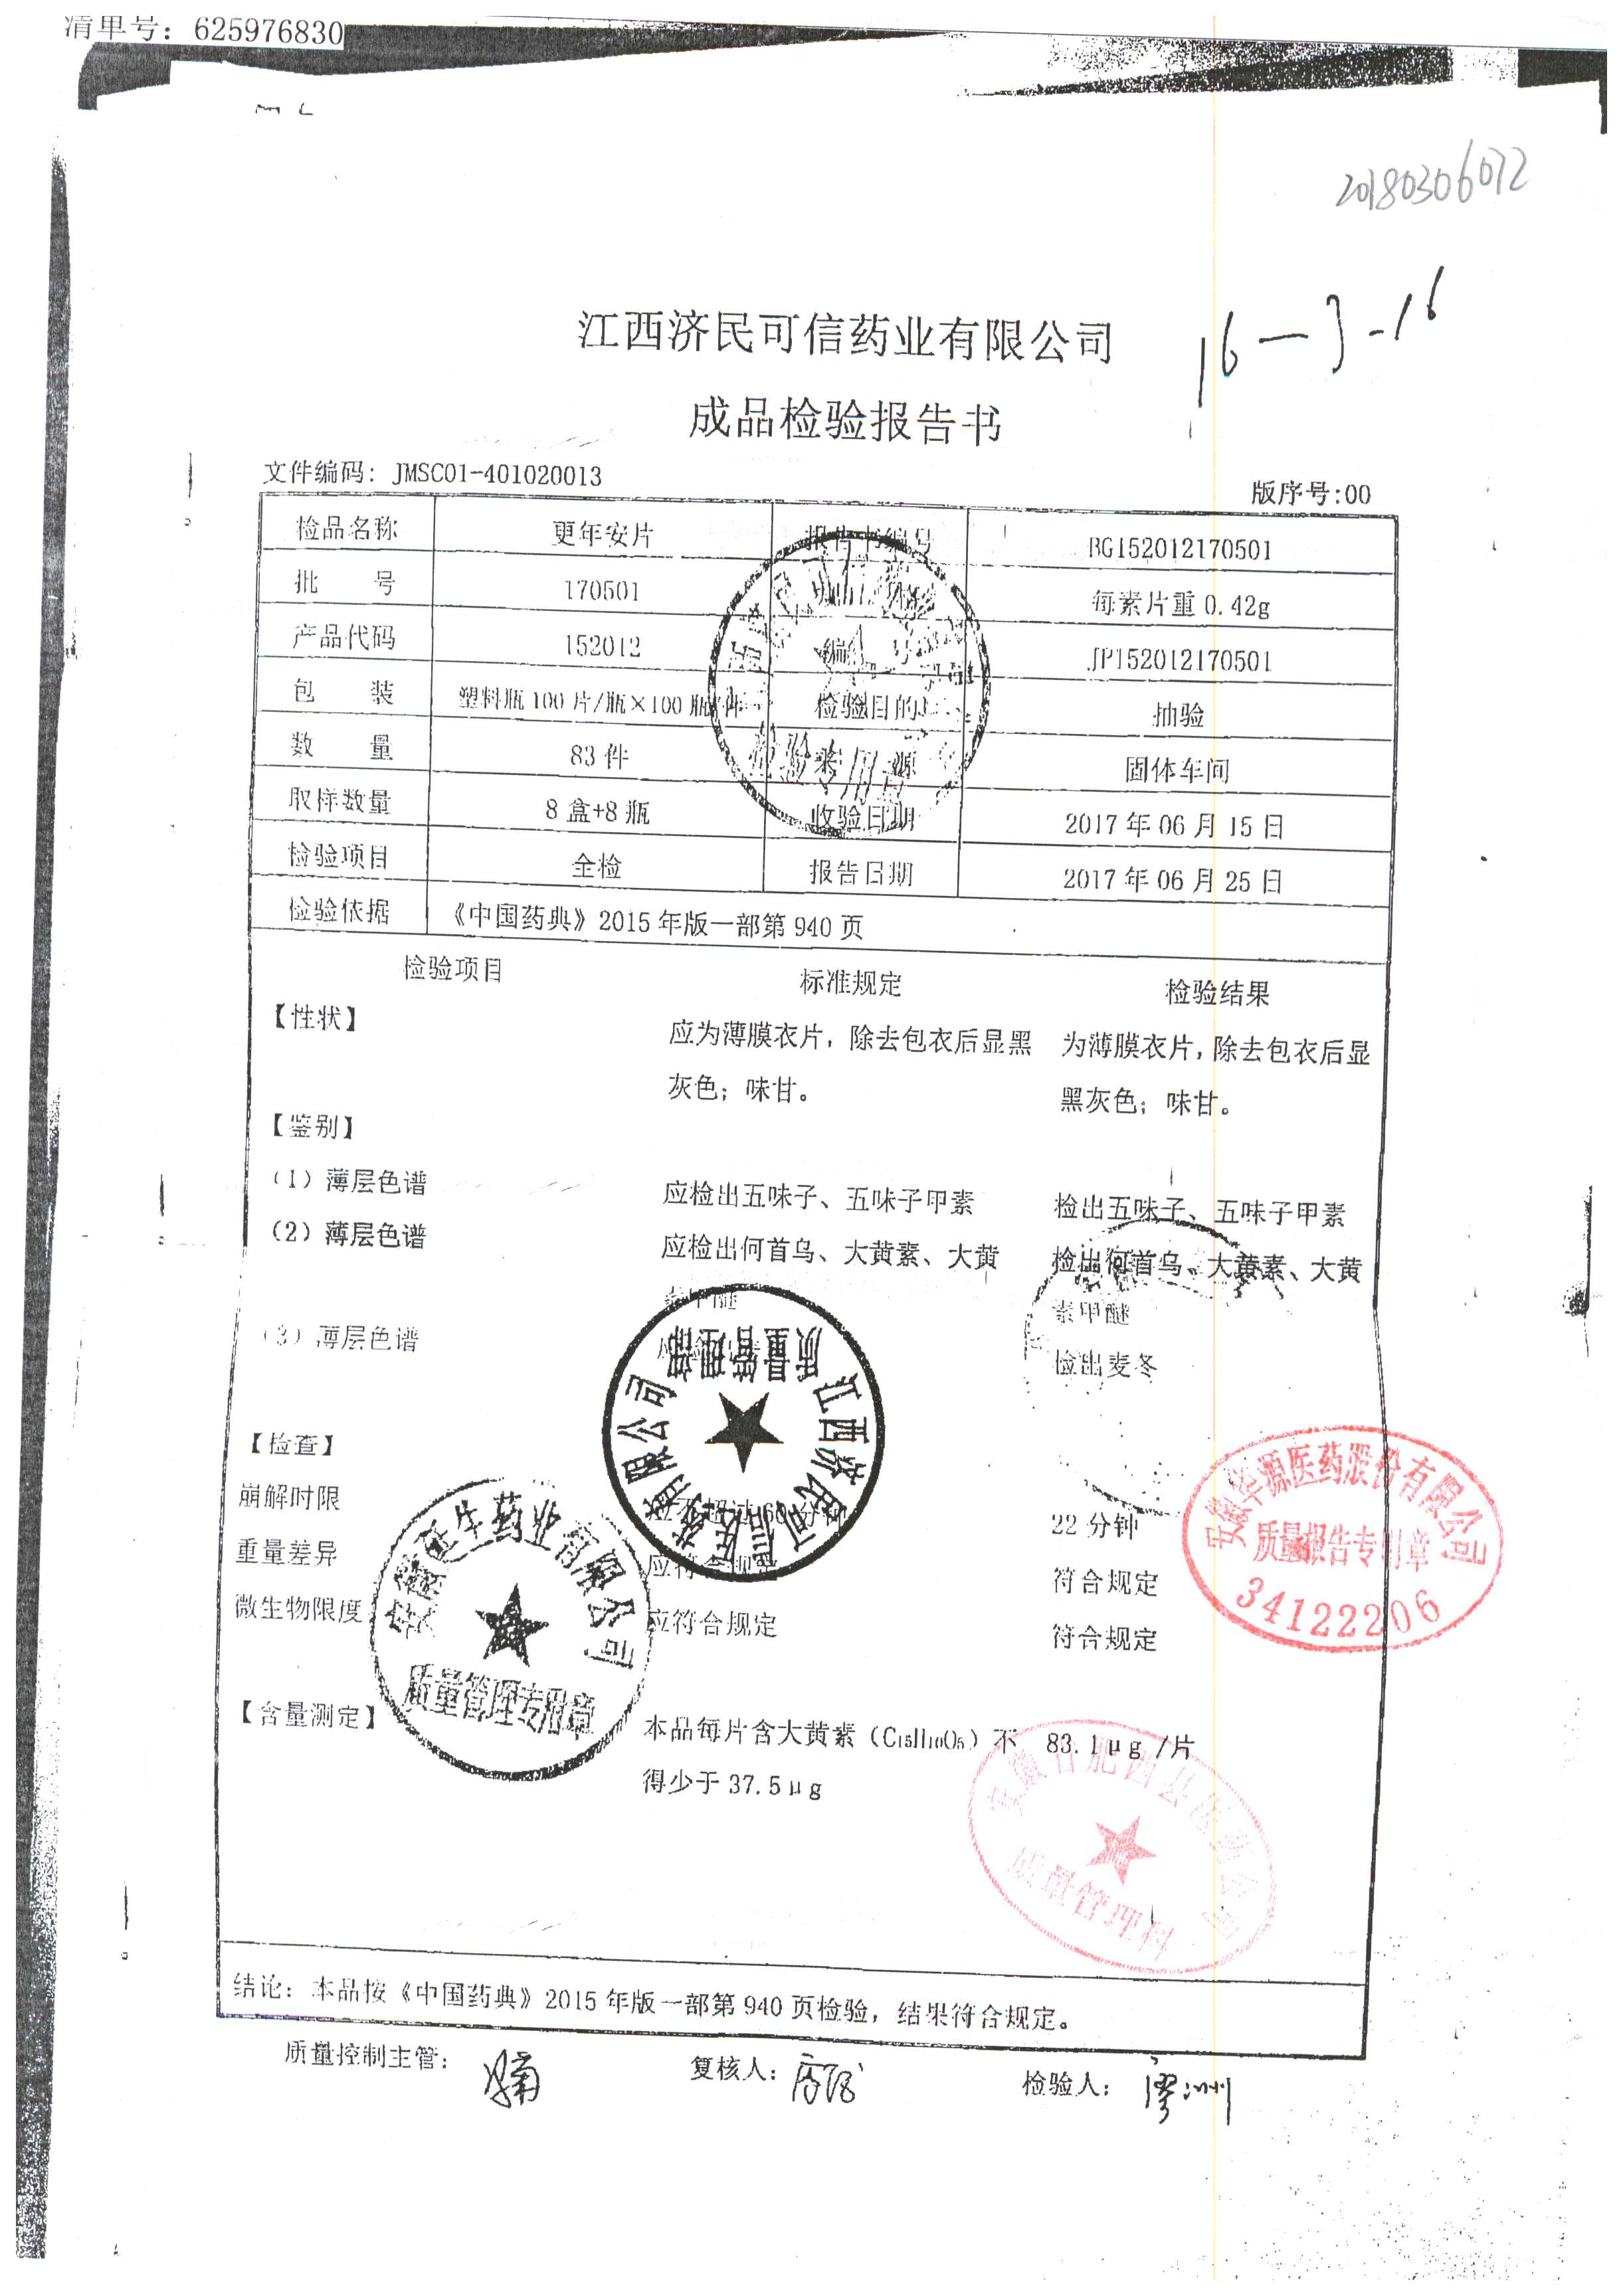 清单号：625976830
20180306072
16-3-16
江西济民可信药业有限公司
成品检验报告书
文件编码：JMSC01-401020013
版序号:00
检品名称 更年安片 报告书编号 BG152012170501
批 号 170501 每素片重 0.42g
产品代码 152012 编 JP152012170501
包 装 塑料瓶 100 片/瓶×100 瓶/件 检验目的 抽验
数 量 83 件 来 源 固体车间
取样数量 8 盒+8 瓶 收验日期 2017 年 06 月 15 日
检验项目 全检 报告日期 2017 年 06 月 25 日
检验依据 《中国药典》2015 年版一部第 940 页
检验项目 标准规定 检验结果
【性状】 应为薄膜衣片，除去包衣后显黑 为薄膜衣片，除去包衣后显
灰色；味甘。 黑灰色；味甘。
【鉴别】
（1）薄层色谱 应检出五味子、五味子甲素 检出五味子、五味子甲素
（2）薄层色谱 应检出何首乌、大黄素、大黄 检出何首乌、大黄素、大黄
素甲醚 素甲醚
（3）薄层色谱 检出麦冬
【检查】
崩解时限 应不超过 60 分钟 22 分钟
重量差异 应符合规定 符合规定
微生物限度 应符合规定 符合规定
【含量测定】 本品每片含大黄素（C₁₅H₁₀O₅）不 83.1μg /片
得少于 37.5μg
结论：本品按《中国药典》2015 年版一部第 940 页检验，结果符合规定。
质量控制主管： 复核人： 检验人：
江西济民可信药业有限公司
质量管理部
安徽华源医药股份有限公司
质量管理专用章
安徽华源医药股份有限公司
质量报告专用章
34122206
安徽省肥西县医药公司
质量管理科